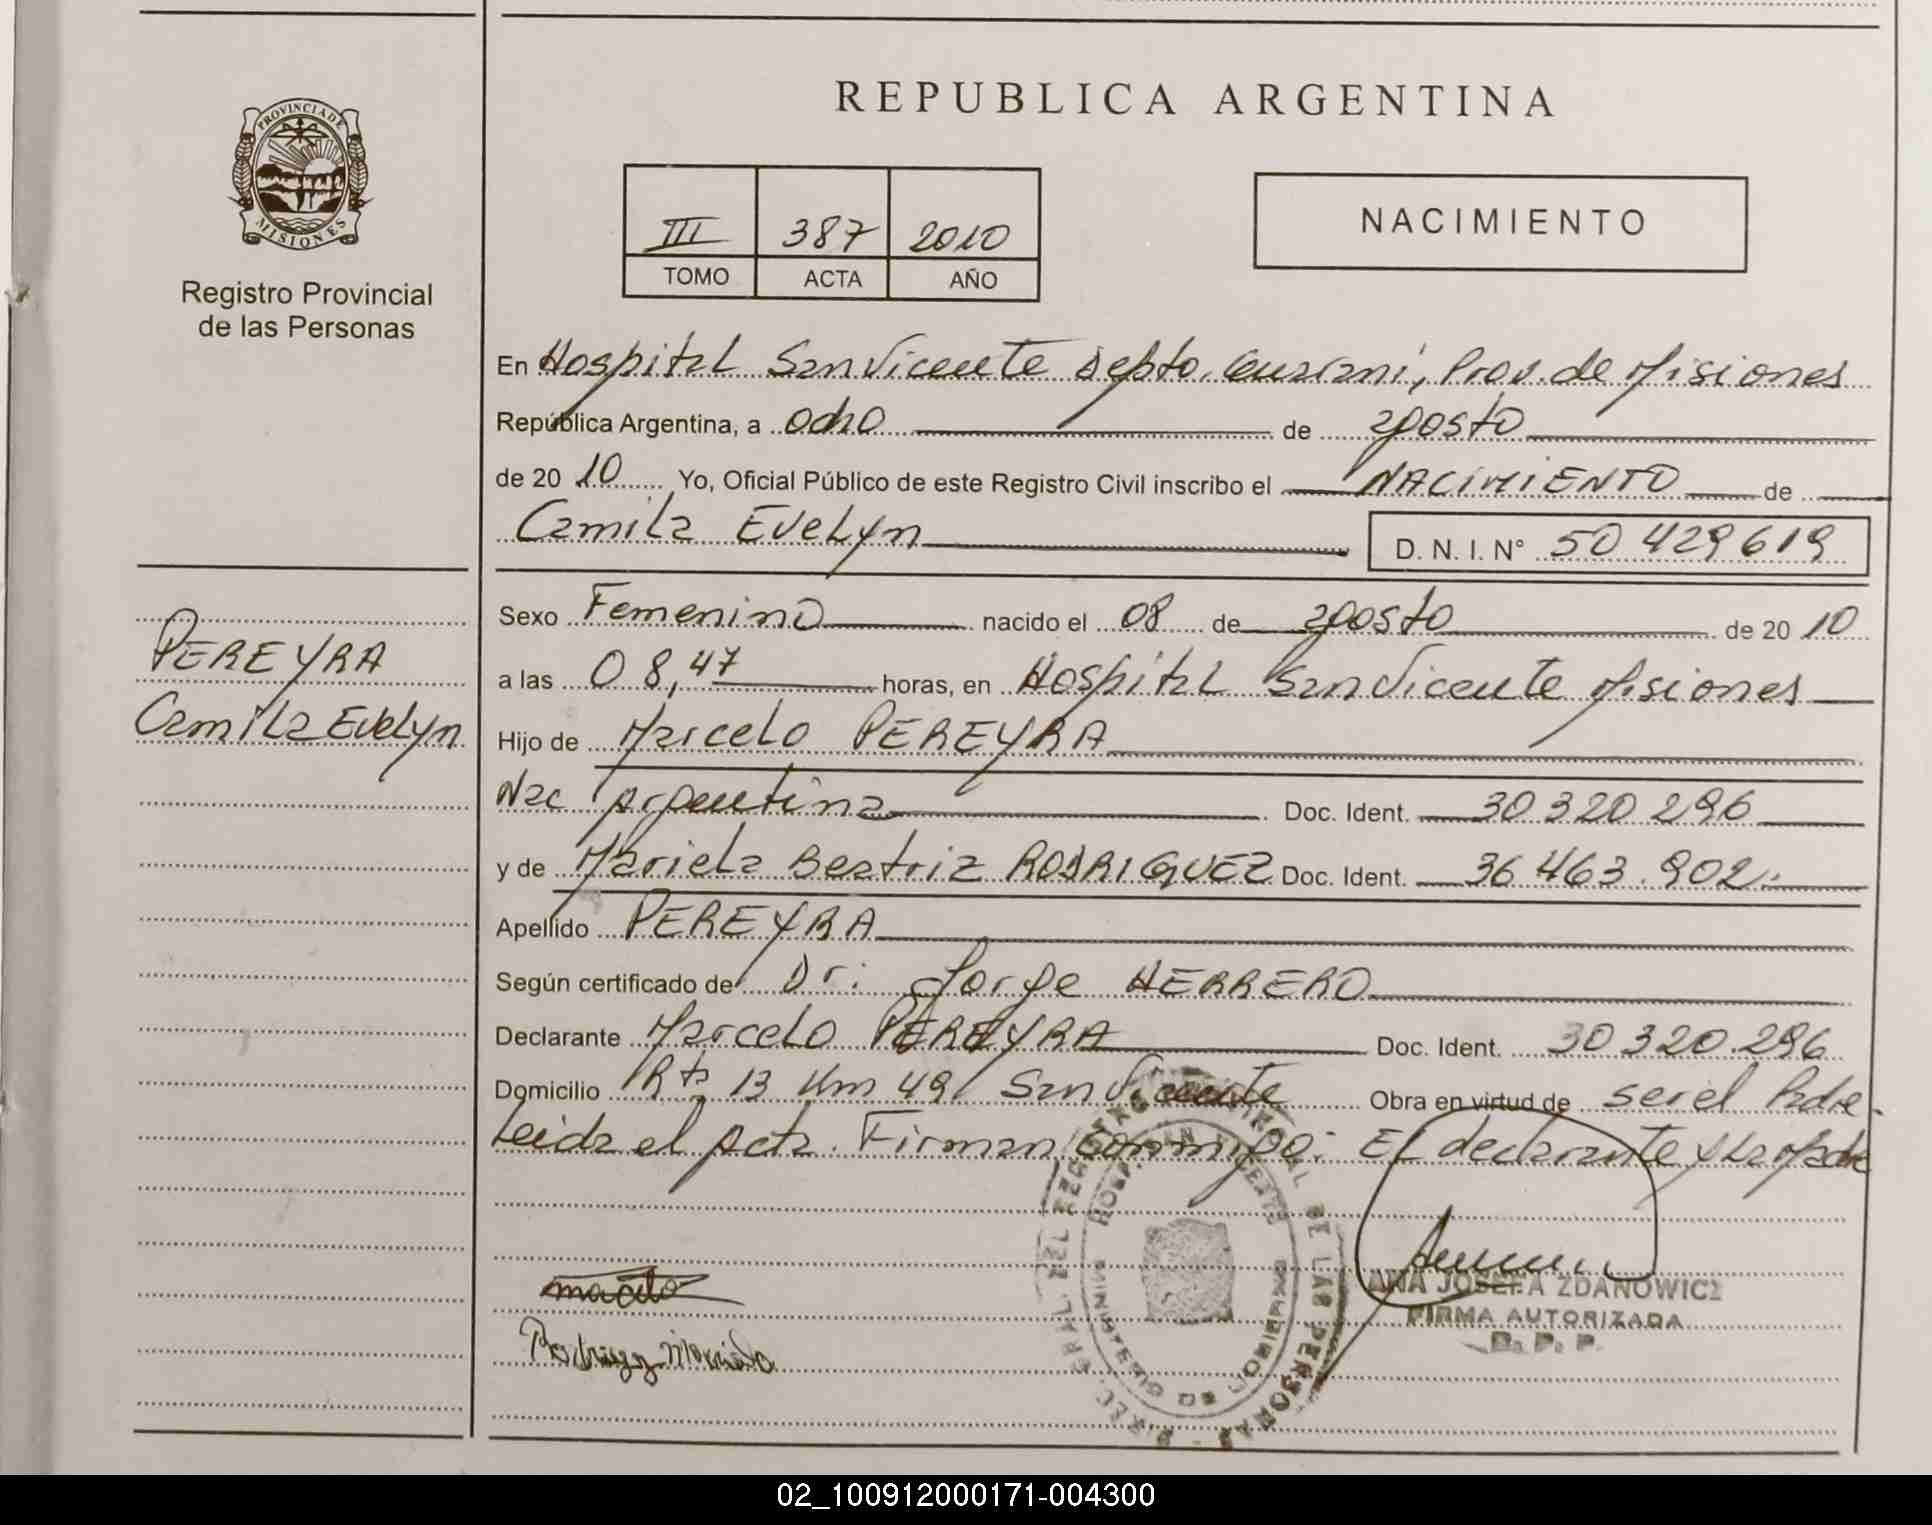 PROVINCIA DE
MISIONES
Registro Provincial
de las Personas
REPUBLICA ARGENTINA
III 387 2010
TOMO ACTA AÑO
NACIMIENTO
En Hospital San Vicente Depto. Guaraní, Prov. de Misiones
República Argentina, a ocho de agosto
de 2010 Yo, Oficial Público de este Registro Civil inscribo el NACIMIENTO de
Camila Evelyn D. N. I. N° 50 429 619
PEREYRA
Camila Evelyn
Sexo Femenino nacido el 08 de agosto de 2010
a las 08,47 horas, en Hospital San Vicente Misiones
Hijo de Marcelo PEREYRA
Nac Argentina Doc. Ident. 30 320 296
y de Mariela Beatriz RODRIGUEZ Doc. Ident. 36 463.902.
Apellido PEREYRA
Según certificado de Dr: Jorge HERRERO
Declarante Marcelo PEREYRA Doc. Ident. 30 320.296
Domicilio Rta 13 Km 49 San Vicente Obra en virtud de ser el Padre.
Leida el Acta. Firman conmigo: El declarante y la Madre
ANA JOSEFA ZDANOWICZ
FIRMA AUTORIZADA
R. P. P.
02_100912000171-004300